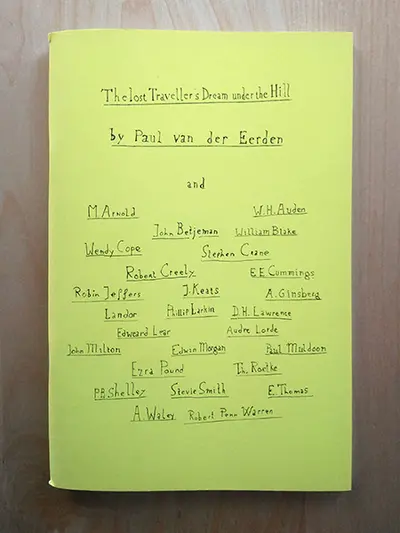 The lost Traveller's Dream under the Hill
by Paul van der Eerden
and
M. Arnold W.H. Auden
John Betjeman William Blake
Wendy Cope Stephen Crane
Robert Creely E.E. Cummings
Robin Jeffers J. Keats A. Ginsberg
Landor Philip Larkin D.H. Lawrence
Edward Lear Audre Lorde
John Milton Edwin Morgan Paul Muldoon
Ezra Pound Th. Roetke
P.B. Shelley Stevie Smith E. Thomas
A. Waley Robert Penn Warren